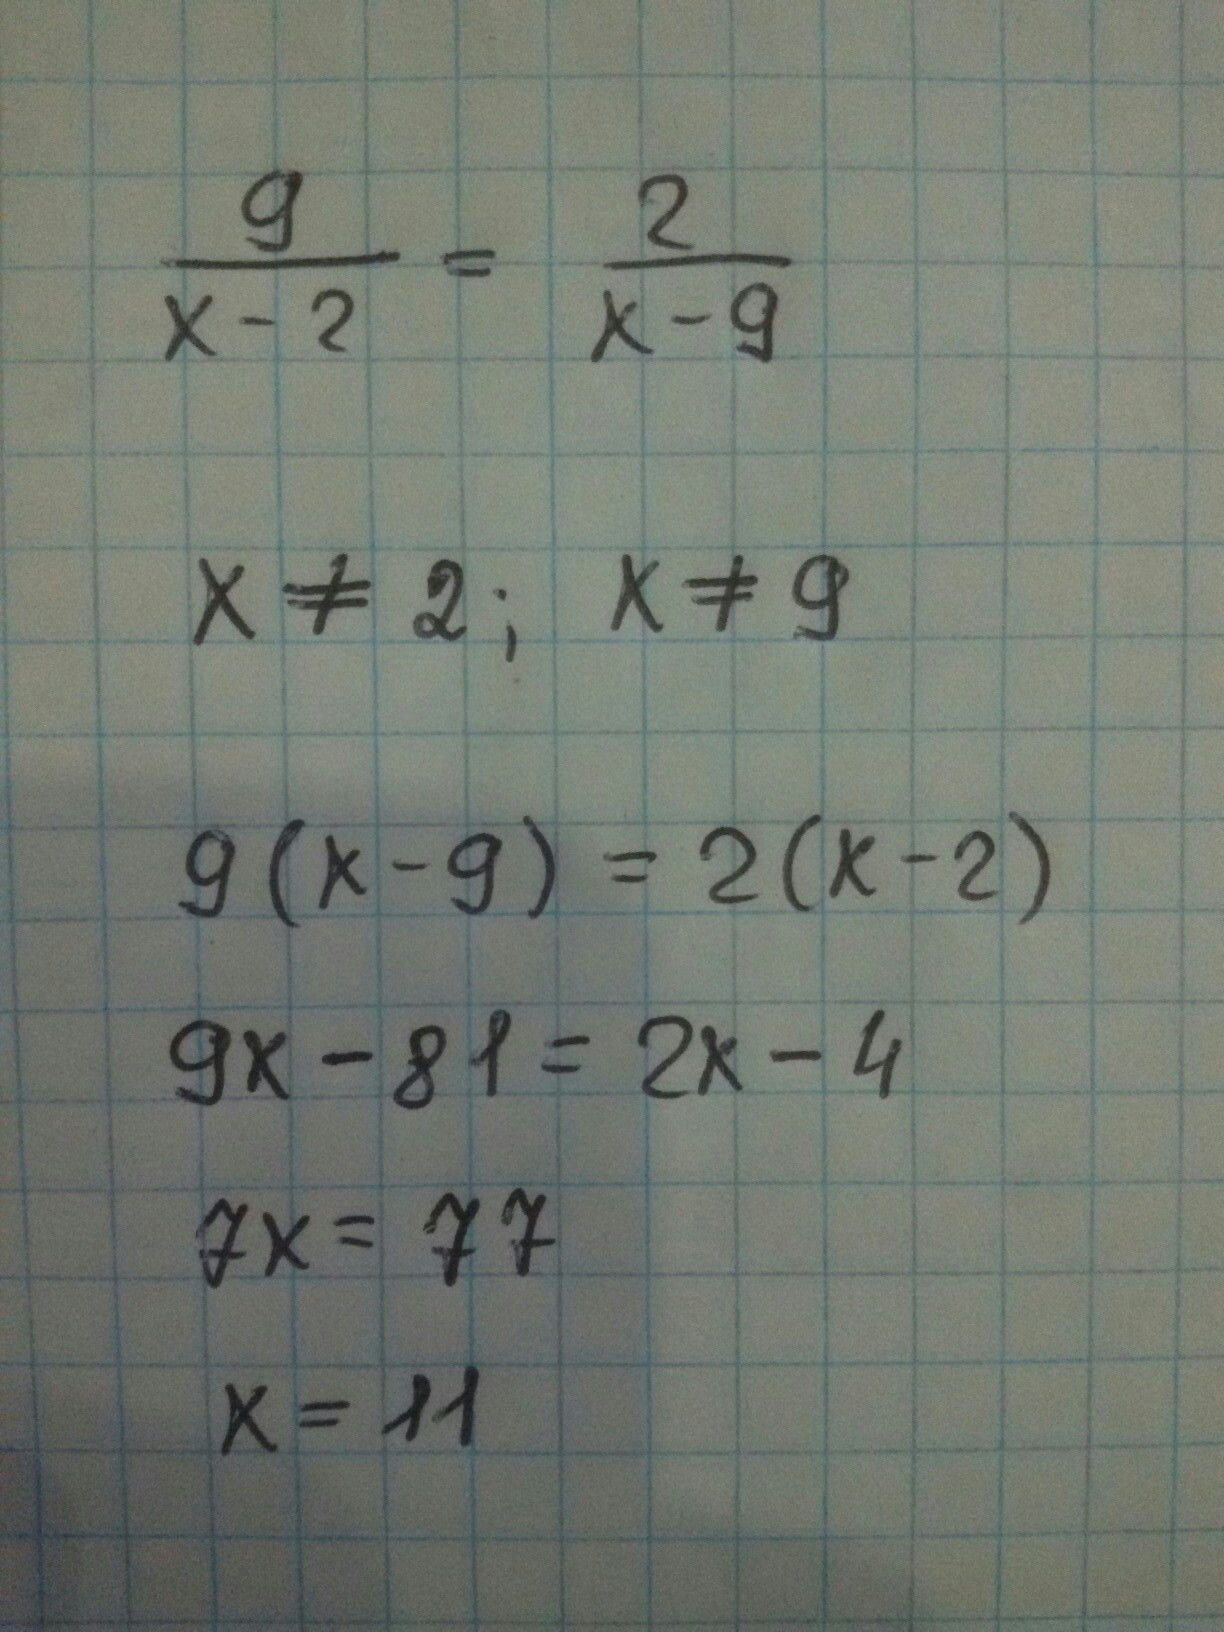 9/(x-2) = 2/(x-9)
x ≠ 2; x ≠ 9
9(x-9) = 2(x-2)
9x - 81 = 2x - 4
7x = 77
x = 11